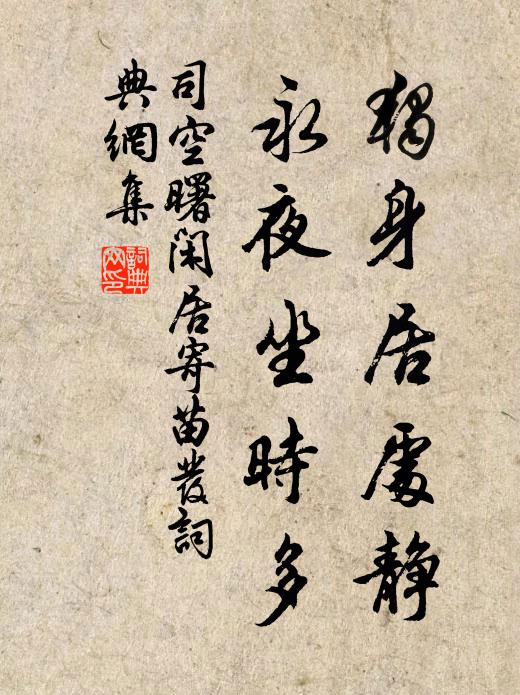 獨身居處靜
永夜坐時多
司空曙閑居寄苗發詞
典網集
詞典網印